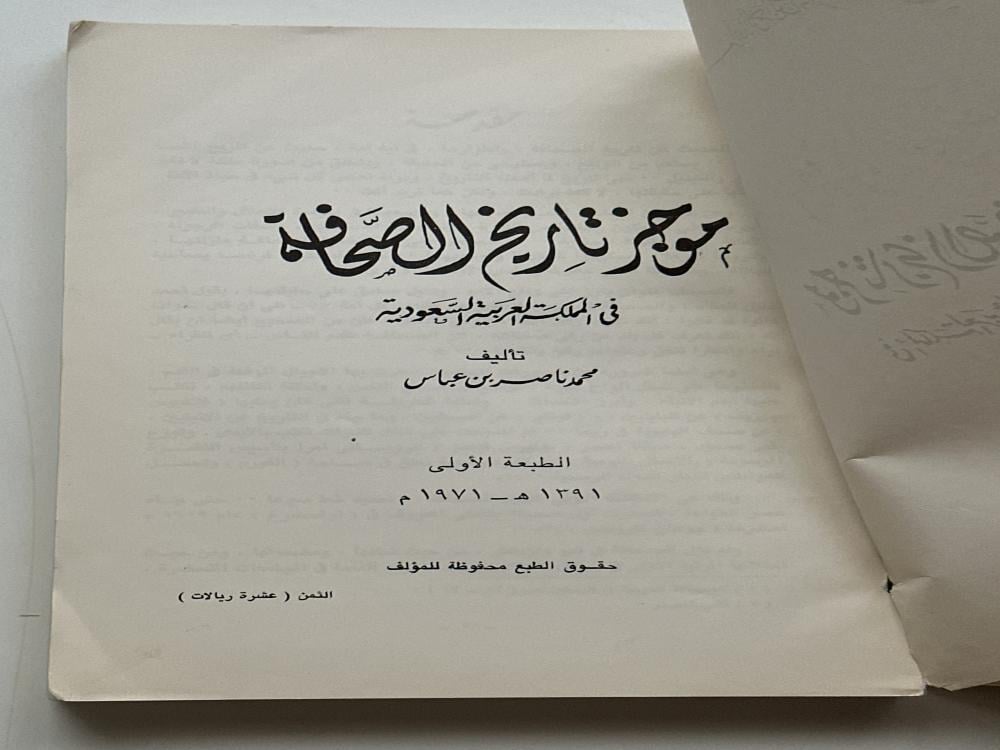 موجز تاريخ الصحافة
في المملكة العربية السعودية
تأليف
محمد ناصر بن عباس
الطبعة الأولى
١٣٩١ هـ – ١٩٧١ م
حقوق الطبع محفوظة للمؤلف
الثمن ( عشرة ريالات )